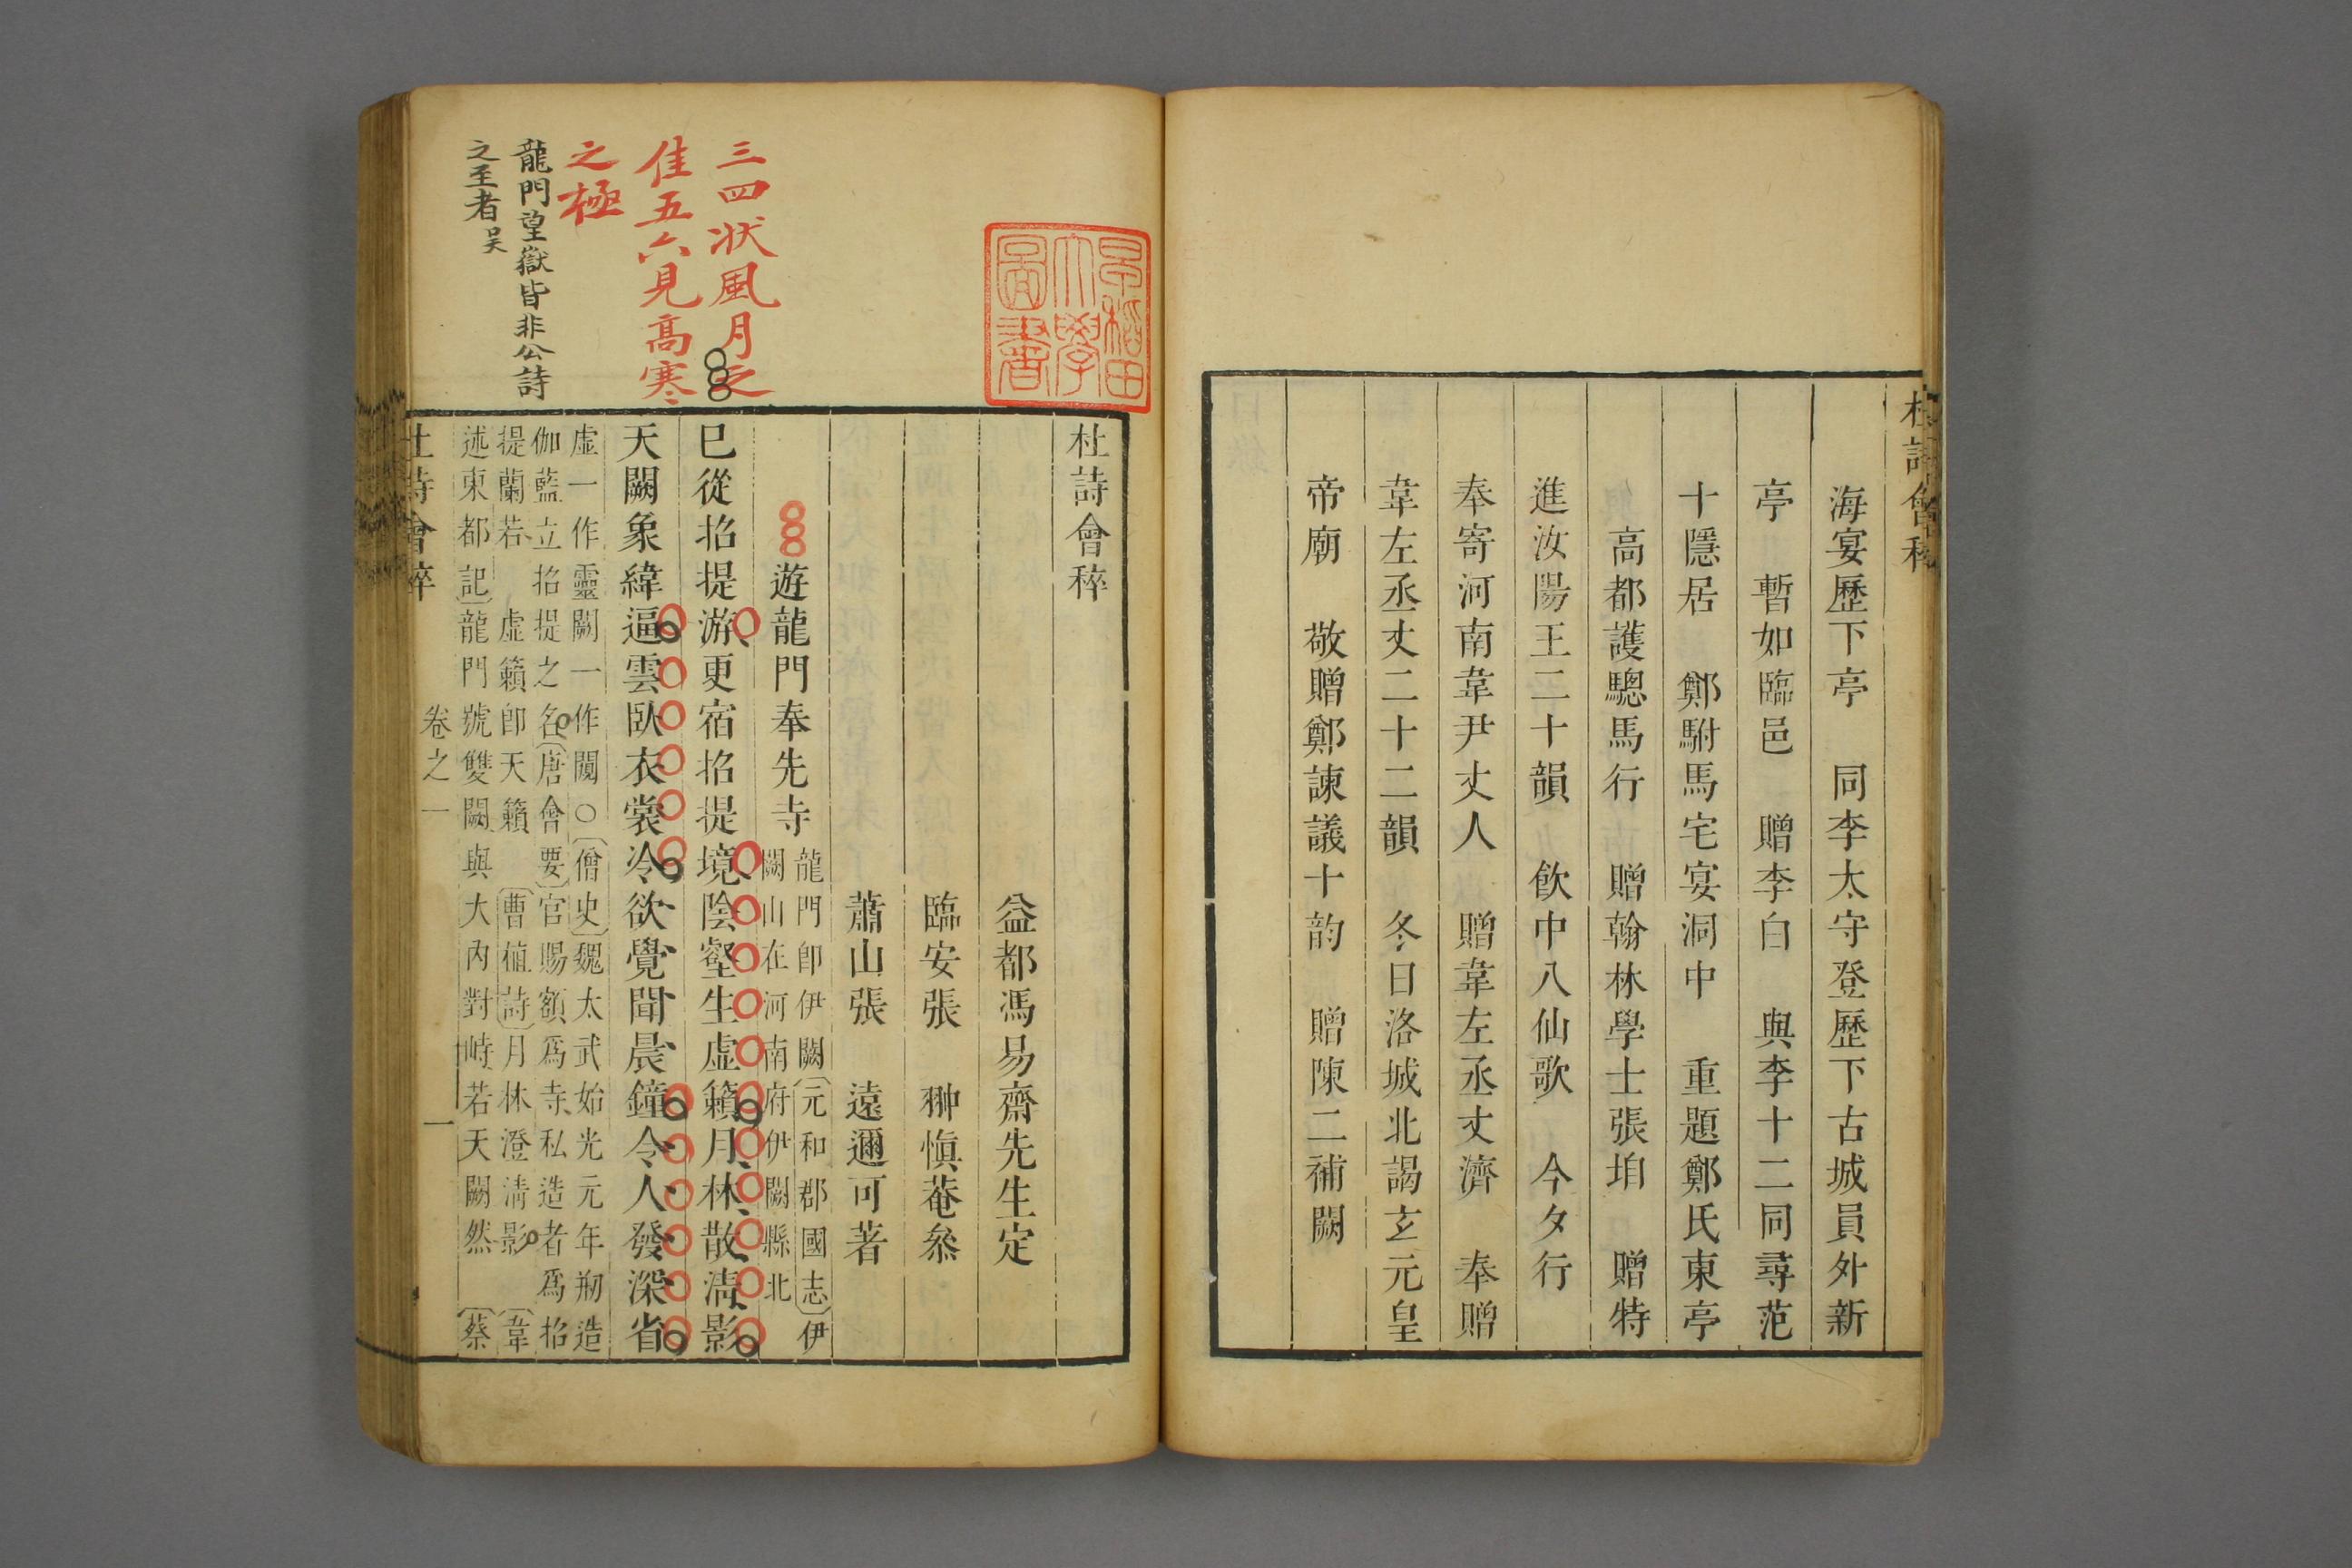 杜詩會稡
海宴歷下亭　同李太守登歷下古城員外新
亭　暫如臨邑　贈李白　與李十二同尋范
十隱居　鄭駙馬宅宴洞中　重題鄭氏東亭
高都護驄馬行　贈翰林學士張垍　贈特
進汝陽王二十韻　飲中八仙歌　今夕行
奉寄河南韋尹丈人　贈韋左丞丈濟　奉贈
韋左丞丈二十二韻　冬日洛城北謁玄元皇
帝廟　敬贈鄭諫議十韵　贈陳二補闕
早稻田
大學
圖書
杜詩會稡
益都馮易齋先生定
臨安張　翀愼菴叅
蕭山張　遠邇可著
遊龍門奉先寺
龍門卽伊闕〔元和郡國志〕伊
闕山在河南府伊闕縣北
已從招提游更宿招提境陰壑生虛籟月林散淸影
天闕象緯逼雲臥衣裳冷欲覺聞晨鐘令人發深省
虛一作靈闕一作闚○〔僧史〕魏太武始光元年刱造
伽藍立招提之名〔唐會要〕官賜額爲寺私造者爲招
提蘭若　虛籟卽天籟　〔曹植詩〕月林澄淸影　〔韋
述東都記〕龍門號雙闕與大內對峙若天闕然　〔蔡
杜詩會稡　卷之一　一
三四狀風月之
佳五六見高寒
之極
龍門望嶽皆非公詩
之至者 吳